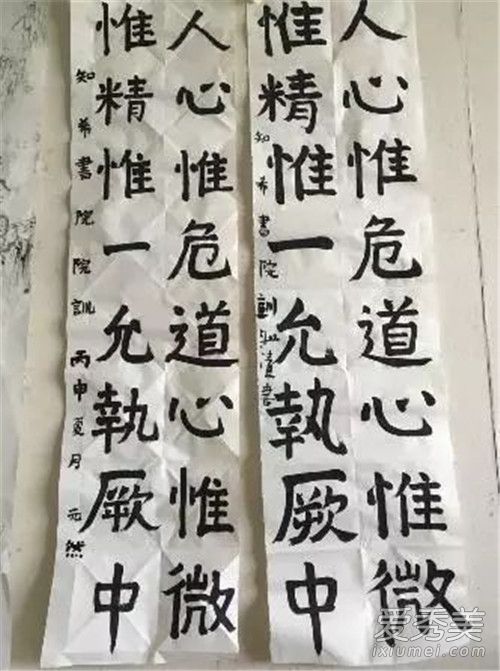 人心惟危道心惟微
惟精惟一允執厥中
知希書院訓 書
人心惟危道心惟微
惟精惟一允執厥中
知希書院院訓 丙申夏月 元然
爱秀美
ixiumei.com